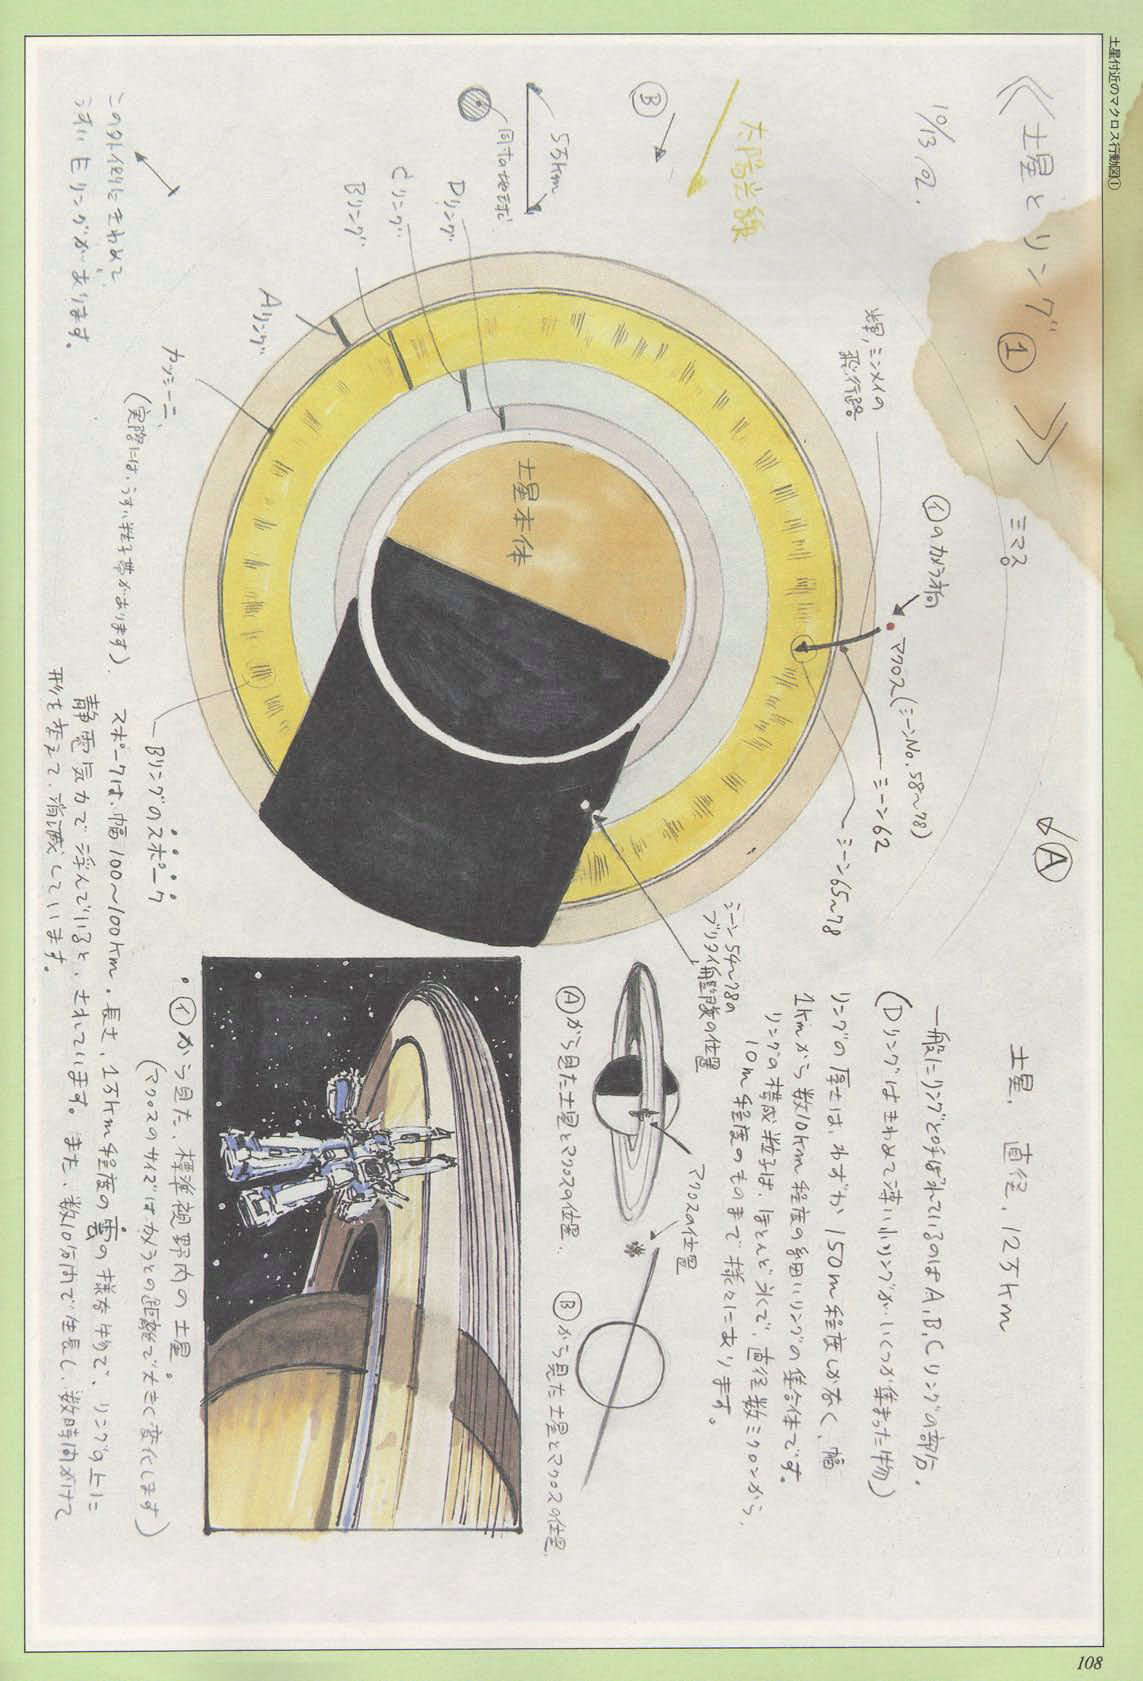 土星付近のマクロス行動図①
《土星とリング①》
10/13 '82.
太陽光線
Ⓑ
5万km
同寸の地球
Dリング
Cリング
Bリング
Aリング
カッシーニ
(実際には、うすい粒子帯があります)
この外側にきわめて
うすいEリングがあります。
土星本体
輝,ミンメイの
飛行路
ミマス。
㋑のカメラ横
マクロス(シーンNo.58〜78)
シーン62
シーン65〜78
Ⓐ
シーン54〜78の
ブリタイ艦隊の位置
Bリングのスポーク
土星. 直径. 12万km
一般にリングと呼ばれているのはA,B,Cリングの部分.
(Dリングはきわめて薄い小リングがいくつか集まった物)
リングの厚さは、わずか150m程度しかなく、幅
1kmから数10km程度の細いリングの集合体です。
リングの構成粒子は、ほとんど氷で、直径数ミクロンから、
10m程度のものまで様々にあります。
マクロスの位置
マクロスの位置
Ⓐから見た土星とマクロスの位置.
Ⓑから見た土星とマクロスの位置.
㋑から見た、標準視野内の土星。
(マクロスのサイズはカメラとの距離で大きく変化します)
スポークは、幅100〜100km。長さ、1万km程度の雲の様な物で、リングの上に
静電気力で浮んでいると、されています。また、数10分内で生長し、数時間かけて
形を変えて、消滅しています。
108